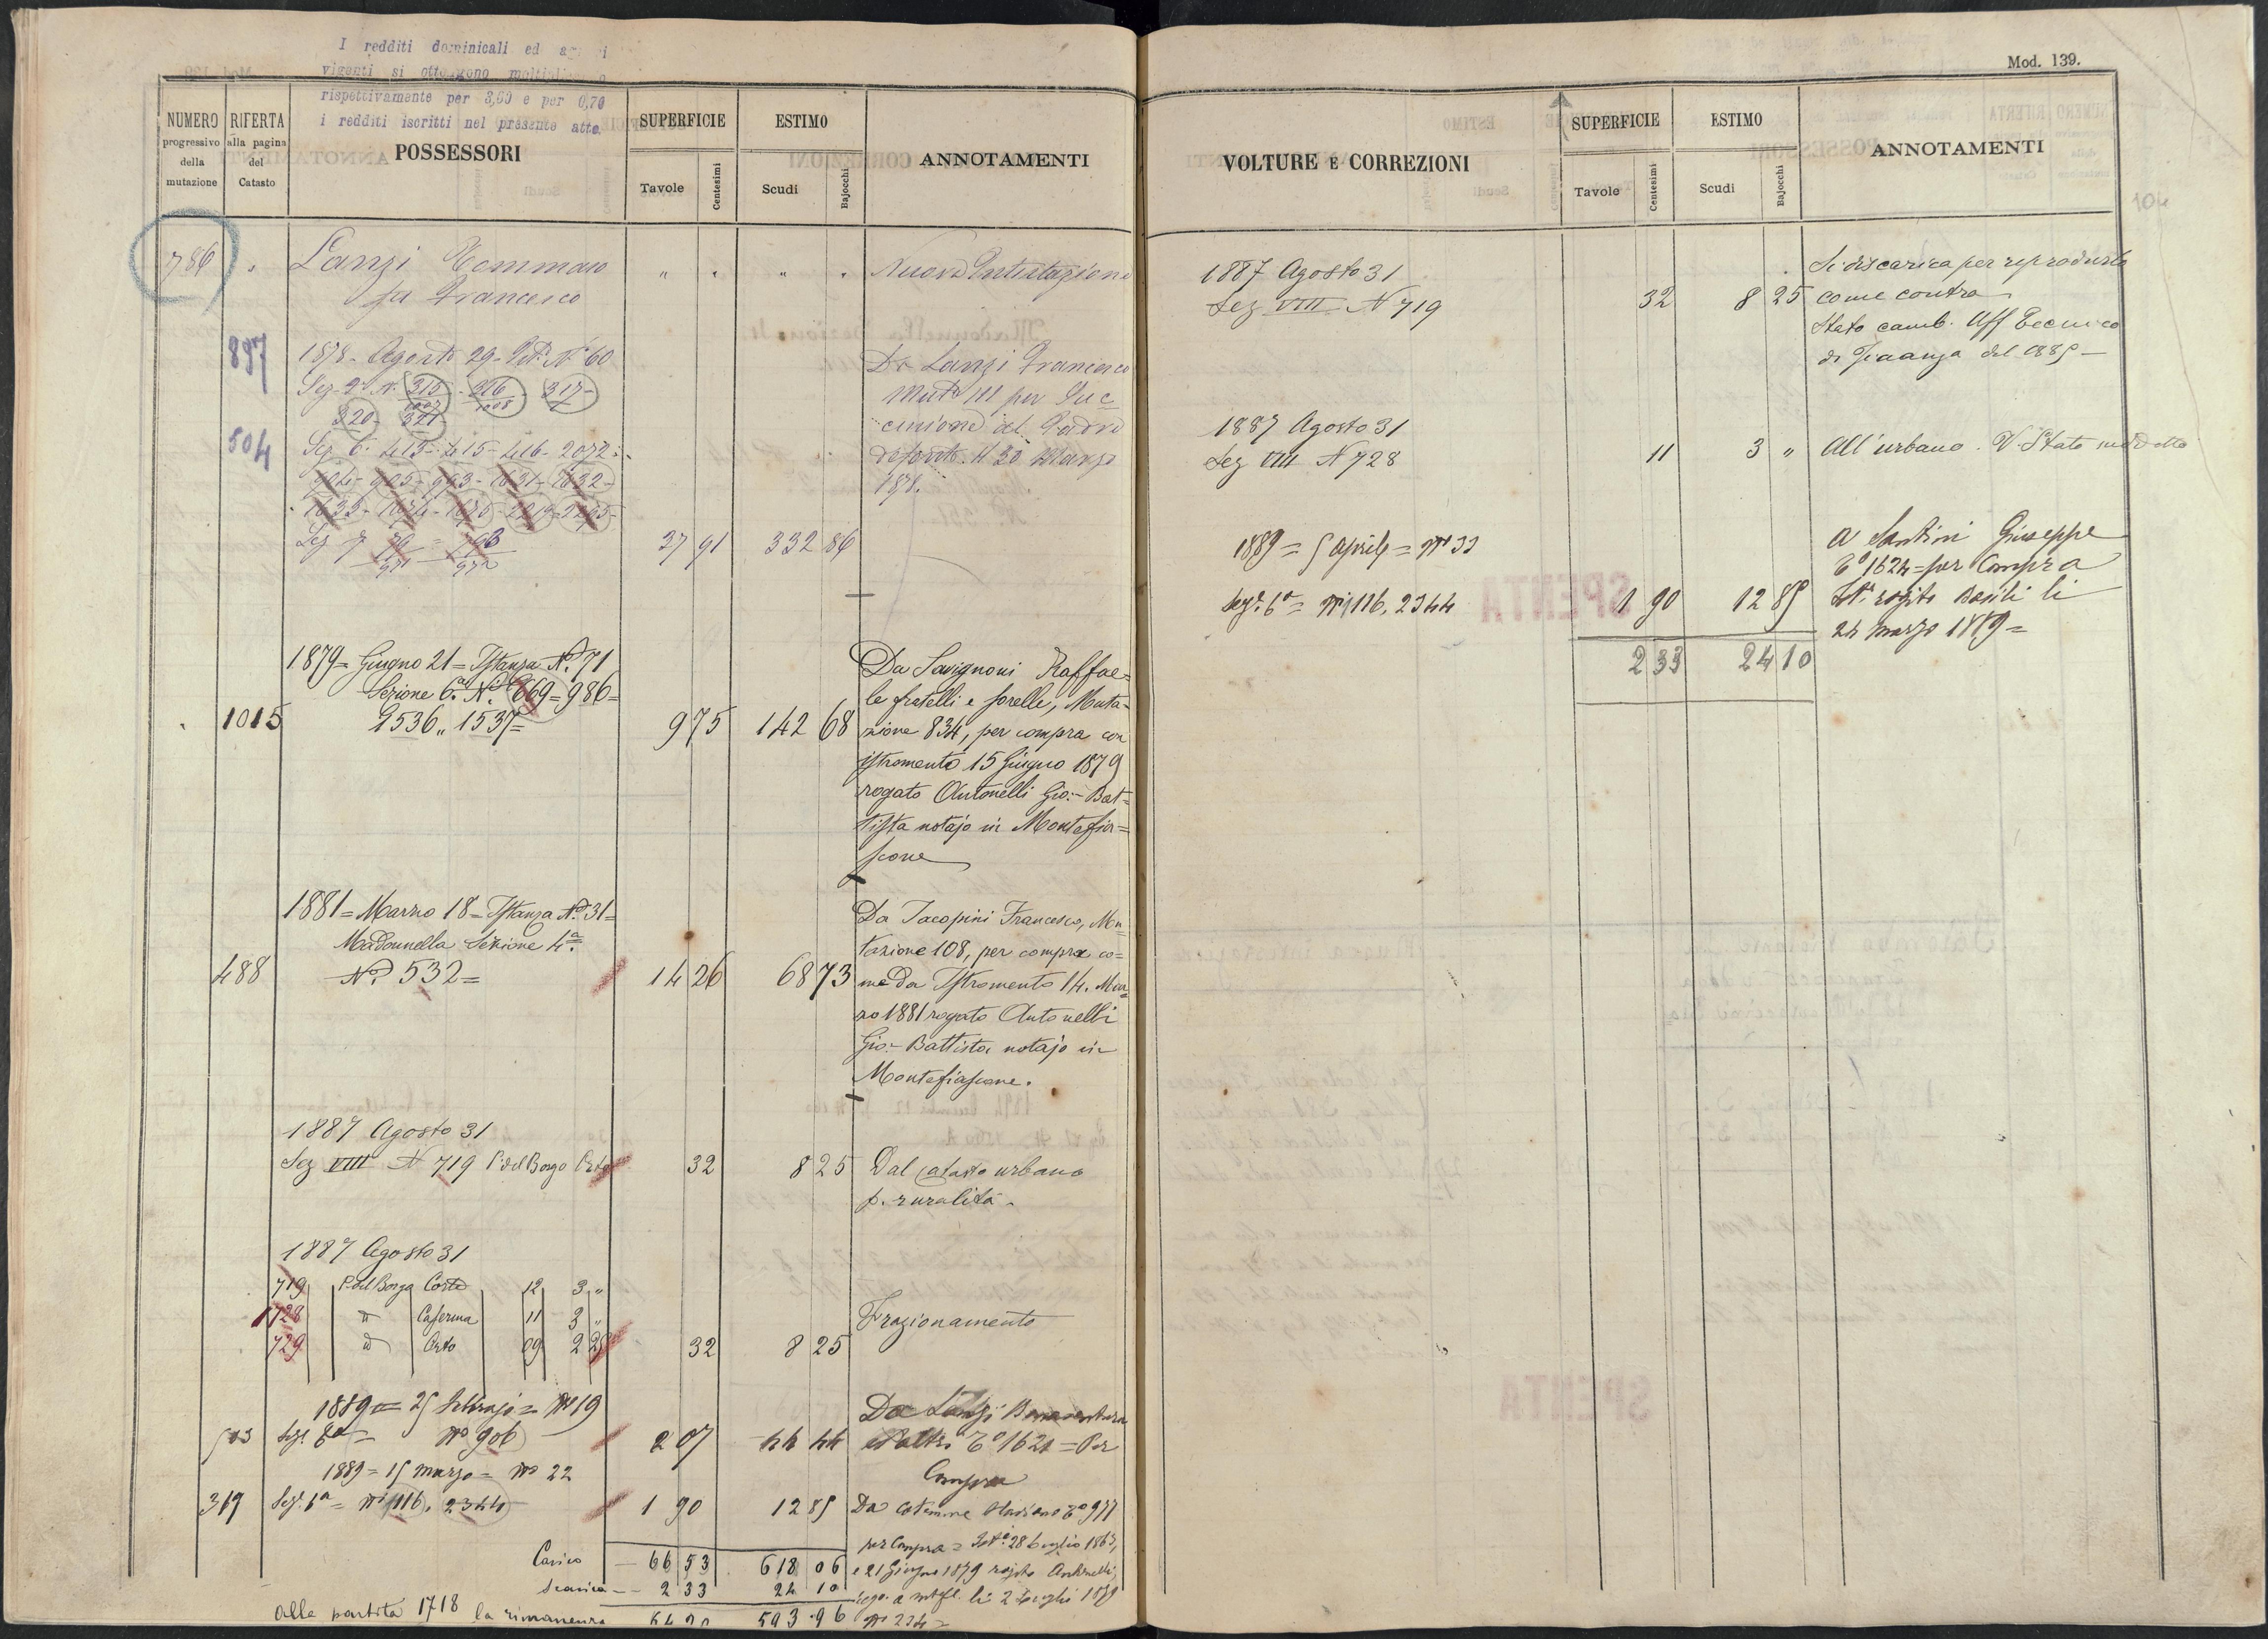 I redditi dominicali ed
vigenti si ottengono
rispettivamente per 3,60 e per 0,70
i redditi iscritti nel presente atto.
NUMERO progressivo della mutazione
RIFERTA alla pagina del Catasto
POSSESSORI
SUPERFICIE
Tavole Centesimi
ESTIMO
Scudi Bajocchi
ANNOTAMENTI
786 Lanzi Tommaso " " " " Nuova Intestazione
fu Francesco
897 1878 - Agosto 29 - N. 60
Da Lanzi Francesco
Sez. N. 315 - 316 - 317 -
1007 1008
320 - 321
504 Sez. 6. 413 - 415 - 416 - 2072
904 - 905 - 993 - 1631 - 1632 -
1633 -
Sez 7 79 = 796
971 972
37 91 332 86
mut. 111 per Suc
cessione al Padre
1878.
1879 = Giugno 21 = Istanza N.º 71
Sezione 6.ª N.i 669 = 986 =
1015 1536 " 1537 =
9 75 142 68
Da Savignoni Raffae=
le fratelli e sorelle, Muta=
zione 834, per compra con
istromento 15 Giugno 1879
rogato Antonelli Gio: Bat=
tista notajo in Montefia=
scone
1881 = Marzo 18 = Istanza N.º 31 =
Madonnella Sezione 4.ª
488 N.º 532 =
14 26 68 73
Da Jacopini Francesco, Mu=
tazione 108, per compra co=
me da Istromento 14. Mar=
zo 1881 rogato Antonelli
Gio: Battista notajo in
Montefiascone.
1887 Agosto 31
Sez VIII N 719 P. del Borgo Orto 32 8 25 Dal catasto urbano
p. ruralità -
1887 Agosto 31
719 P. del Borgo 12 3 "
728 id Caserma 11 3 "
729 id Orto 09 2 25
32 8 25
Frazionamento
1889 = 25 Febbrajo = Nº 19
Sez. Nº 906
2 07 44 44
Da Lanzi Bonaventura
1621 = Per
Compra
1889 = 15 marzo = Nº 22
319 Sez. 6ª = Ni 1116, 2344
1 90 12 85
Da
per Compra = 28 Luglio
e 21 Giugno 1879 rogito Antonelli
li 2 Luglio 1879
Nº 234 =
Carico — 66 53 618 06
Scarico — 2 33 24 10
Alla partita 1718 la rimanenza 593 96
Mod. 139.
VOLTURE E CORREZIONI
SUPERFICIE
Tavole Centesimi
ESTIMO
Scudi Bajocchi
ANNOTAMENTI
104
1887 Agosto 31
Sez VIII N 719
32 8 25
Si discarica per riprodursi
come contro
Stato camb. Uff Tecnico
di Finanza del 1885 —
1887 Agosto 31
Sez VIII N 728
11 3 "
All'urbano. V. Stato suddetto
1889 = 5 Aprile = Nº 33
Sez. 6ª = Ni 1116, 2344
1 90 12 85
A Santini Giuseppe
1624 = per Compra
rogito Basili li
24 marzo 1889 =
2 33 24 10
SPENTA
SPENTA